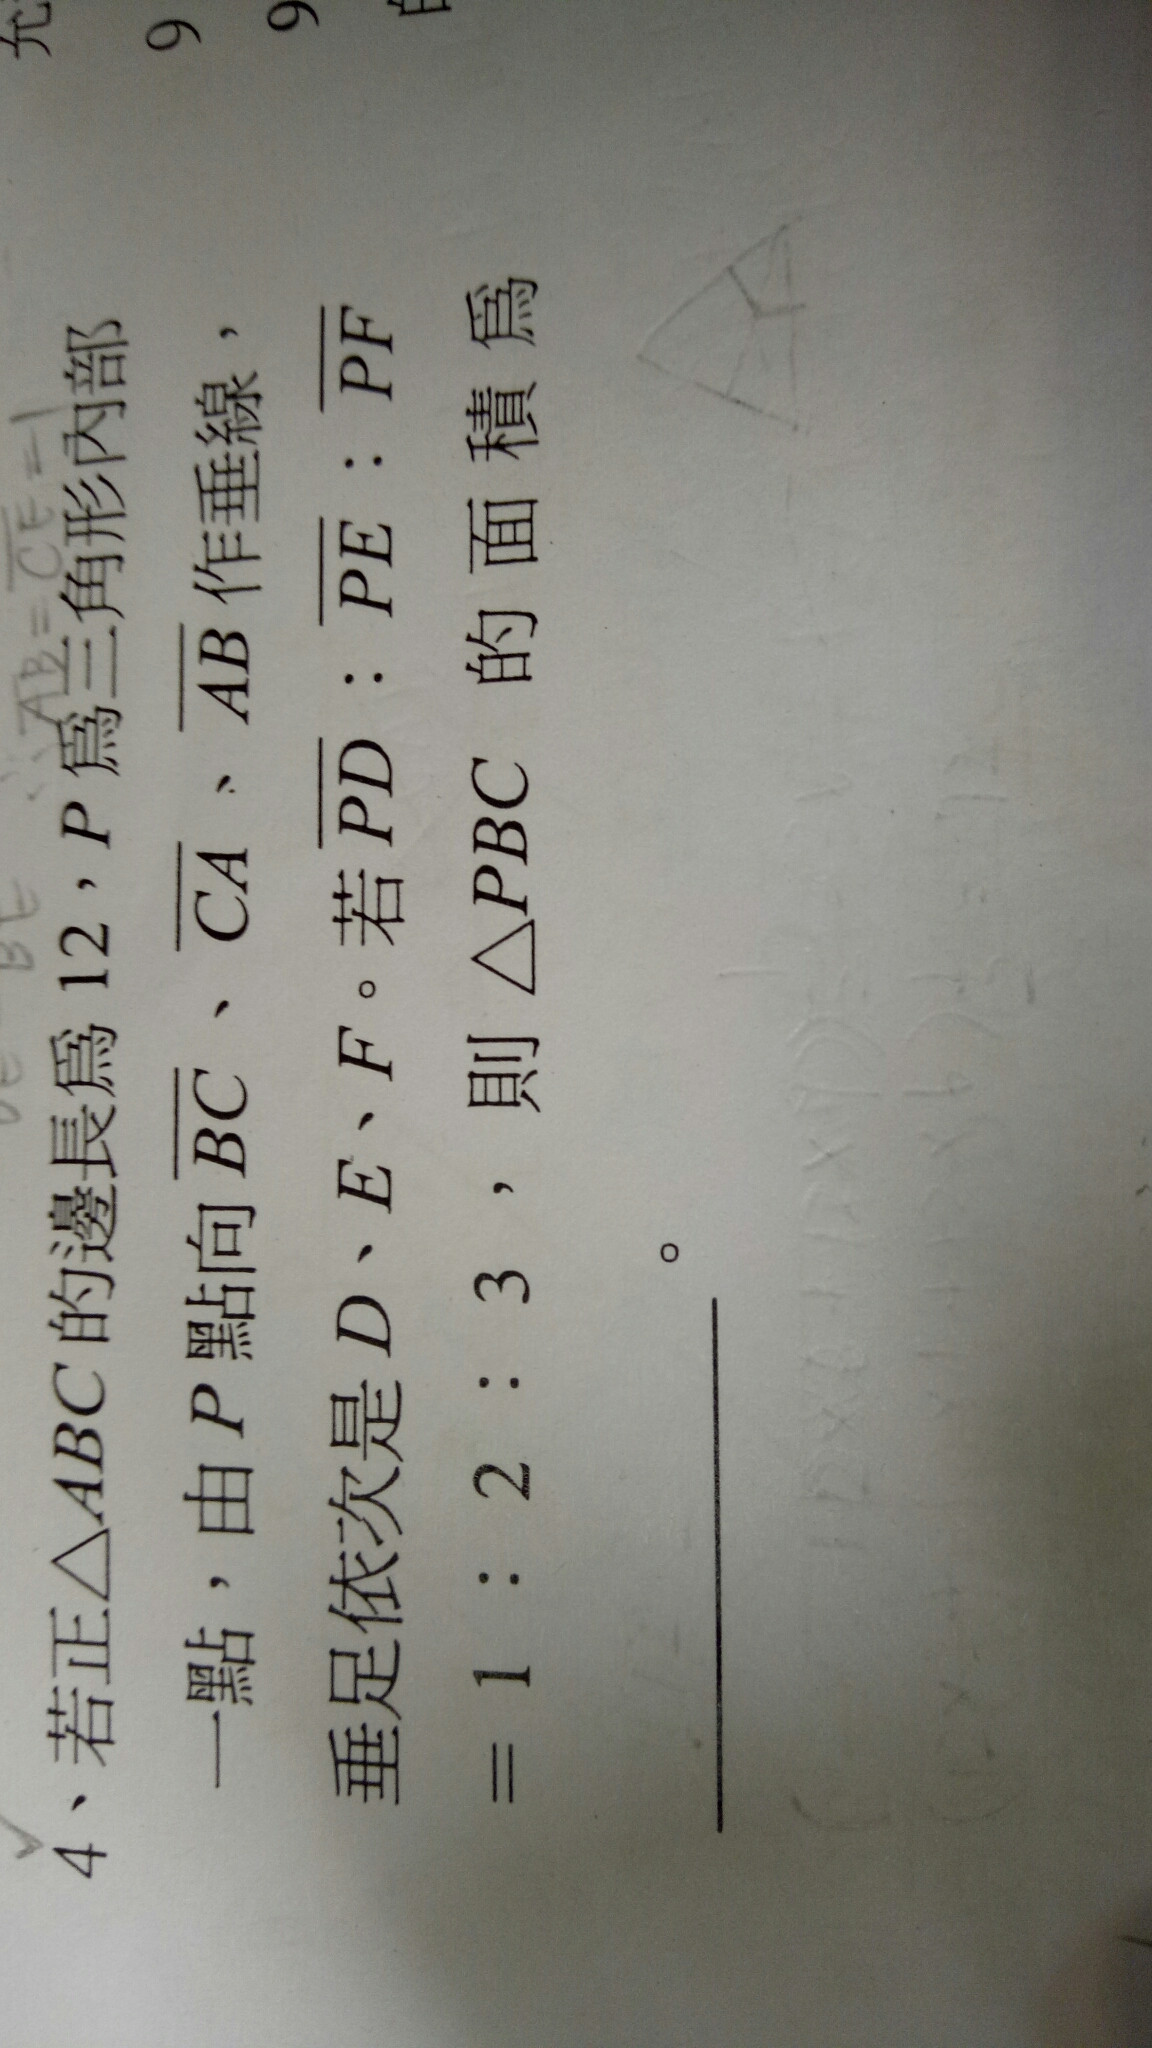 4、若正△ABC的邊長爲12，P爲三角形內部
一點，由P點向BC、CA、AB作垂線，
垂足依次是D、E、F。若PD：PE：PF
=1：2：3，則△PBC的面積爲
。
AB=CE=1
BE
9
9